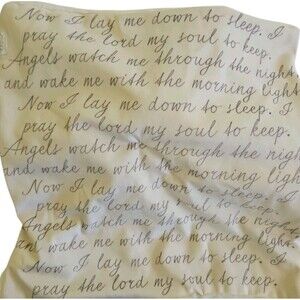 Now I lay me down to sleep. I
pray the lord my soul to keep.
Angels watch me through the night
and wake me with the morning light
Now I lay me down to sleep. I
pray the lord my soul to keep.
Angels watch me through the nigh
and wake me with the morning ligh
Now I lay me down to sleep. I
pray the lord my soul to keep.
Angels watch me through the night
and wake me with the morning light
Now I lay me down to sleep. I
pray the lord my soul to keep.